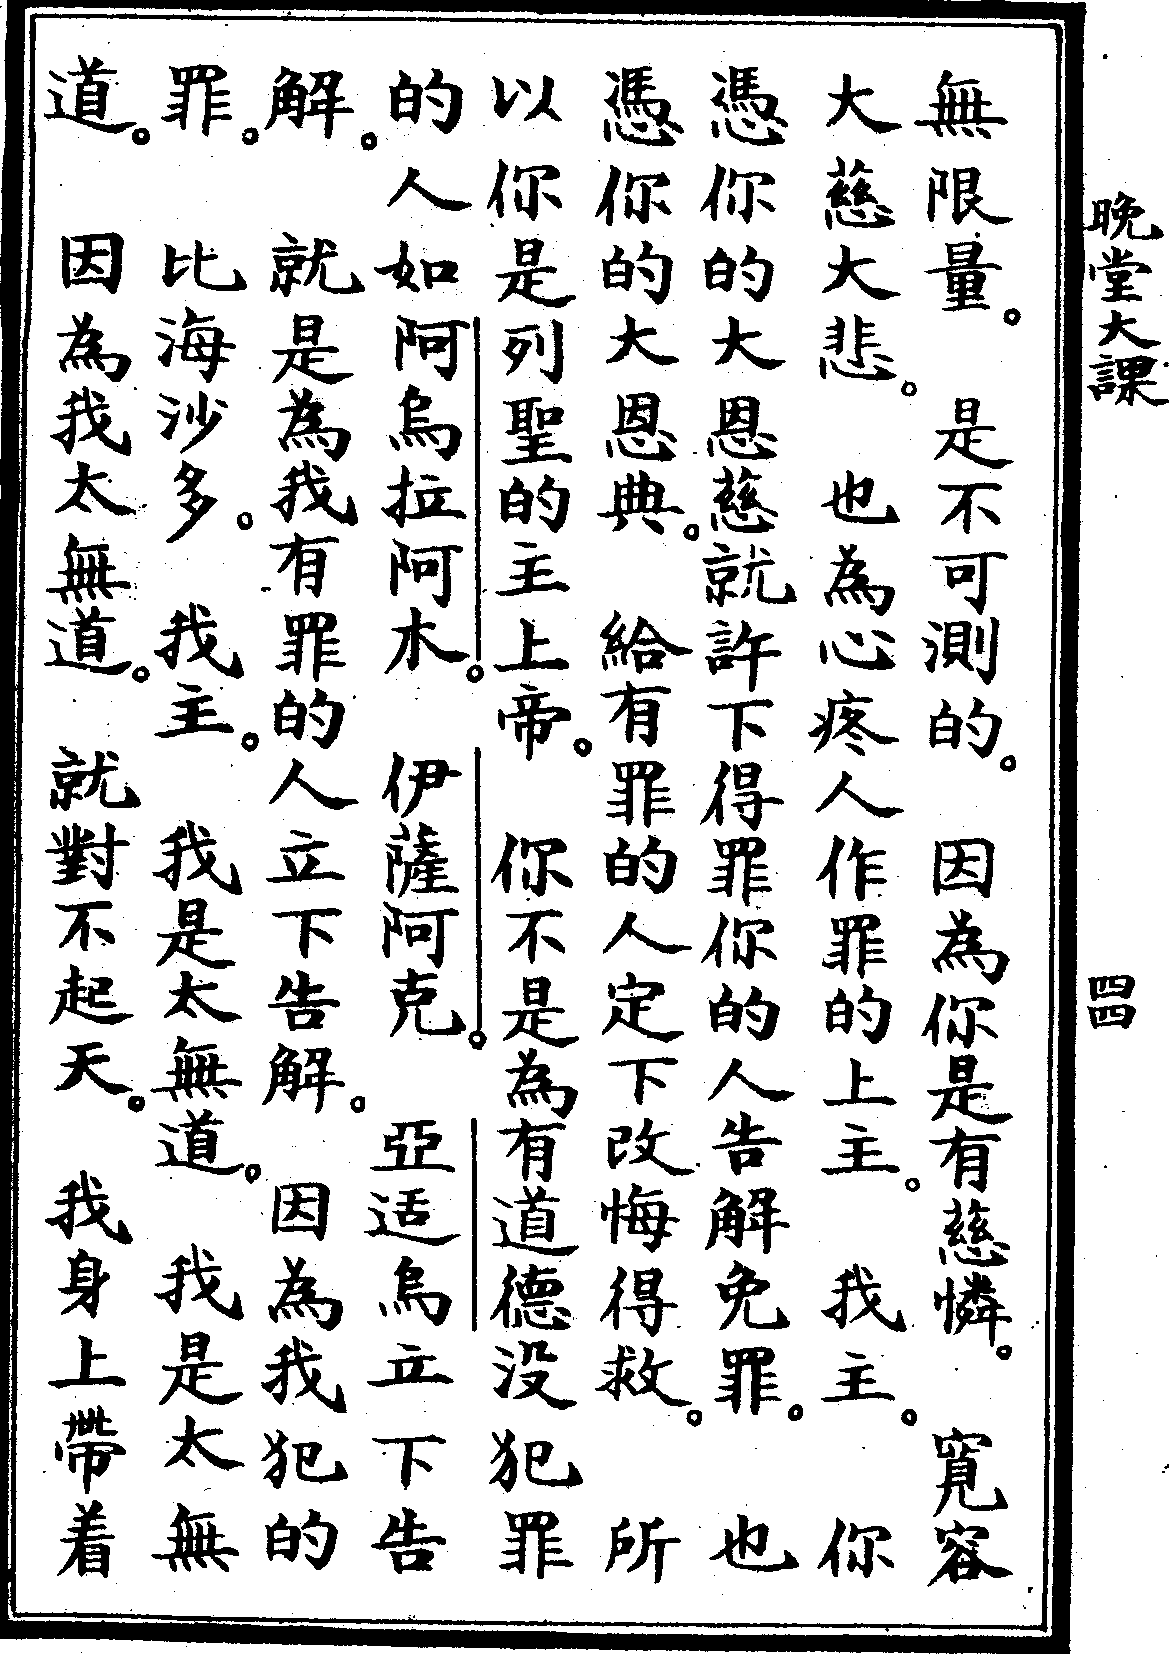 晚堂大課
四四
無限量。是不可測的。因為你是有慈憐。寬容
大慈大悲。也為心疼人作罪的上主。我主。你
憑你的大恩慈就許下得罪你的人告解免罪。也
憑你的大恩典。給有罪的人定下改悔得救。所
以你是列聖的主上帝。你不是為有道德没犯罪
的人如阿烏拉阿木。伊薩阿克。亞适烏立下告
解。就是為我有罪的人立下告解。因為我犯的
罪。比海沙多。我主。我是太無道。我是太無
道。因為我太無道。就對不起天。我身上帶着